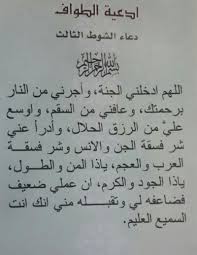 ادعية الطواف
دعاء الشوط الثالث
بسم الله الرحمن الرحيم
اللهم ادخلني الجنة، وأجرني من النار
برحمتك، وعافني من السقم، واوسع
عليّ من الرزق الحلال، وأدرأ عني
شر فسقة الجن والانس وشر فسقة
العرب والعجم، ياذا المن والطول،
ياذا الجود والكرم، ان عملي ضعيف
فضاعفه لي وتقبله مني انك انت
السميع العليم.